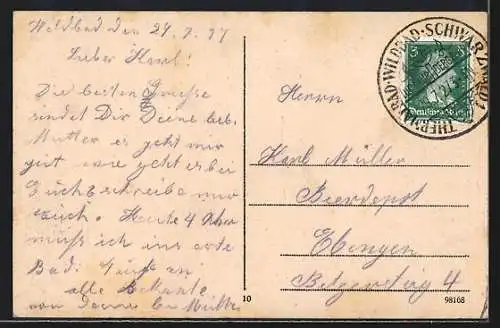 Wildbad den 24.7.27
Lieber Karl!
Die besten Grüße
sendet Dir Deine lieb.
Mutter es geht mir
gut wie geht es bei
Euch schreibe mir
auch. Heute 4 Uhr
muß ich ins erste
Bad. Gruß an
alle Bekannte
von Deine lb. Mutter
Herrn
Karl Müller
Ebingen
4
10
98168
THERMALBAD·WILDBAD·SCHWARZWALD
3 3
Deutsches Reich